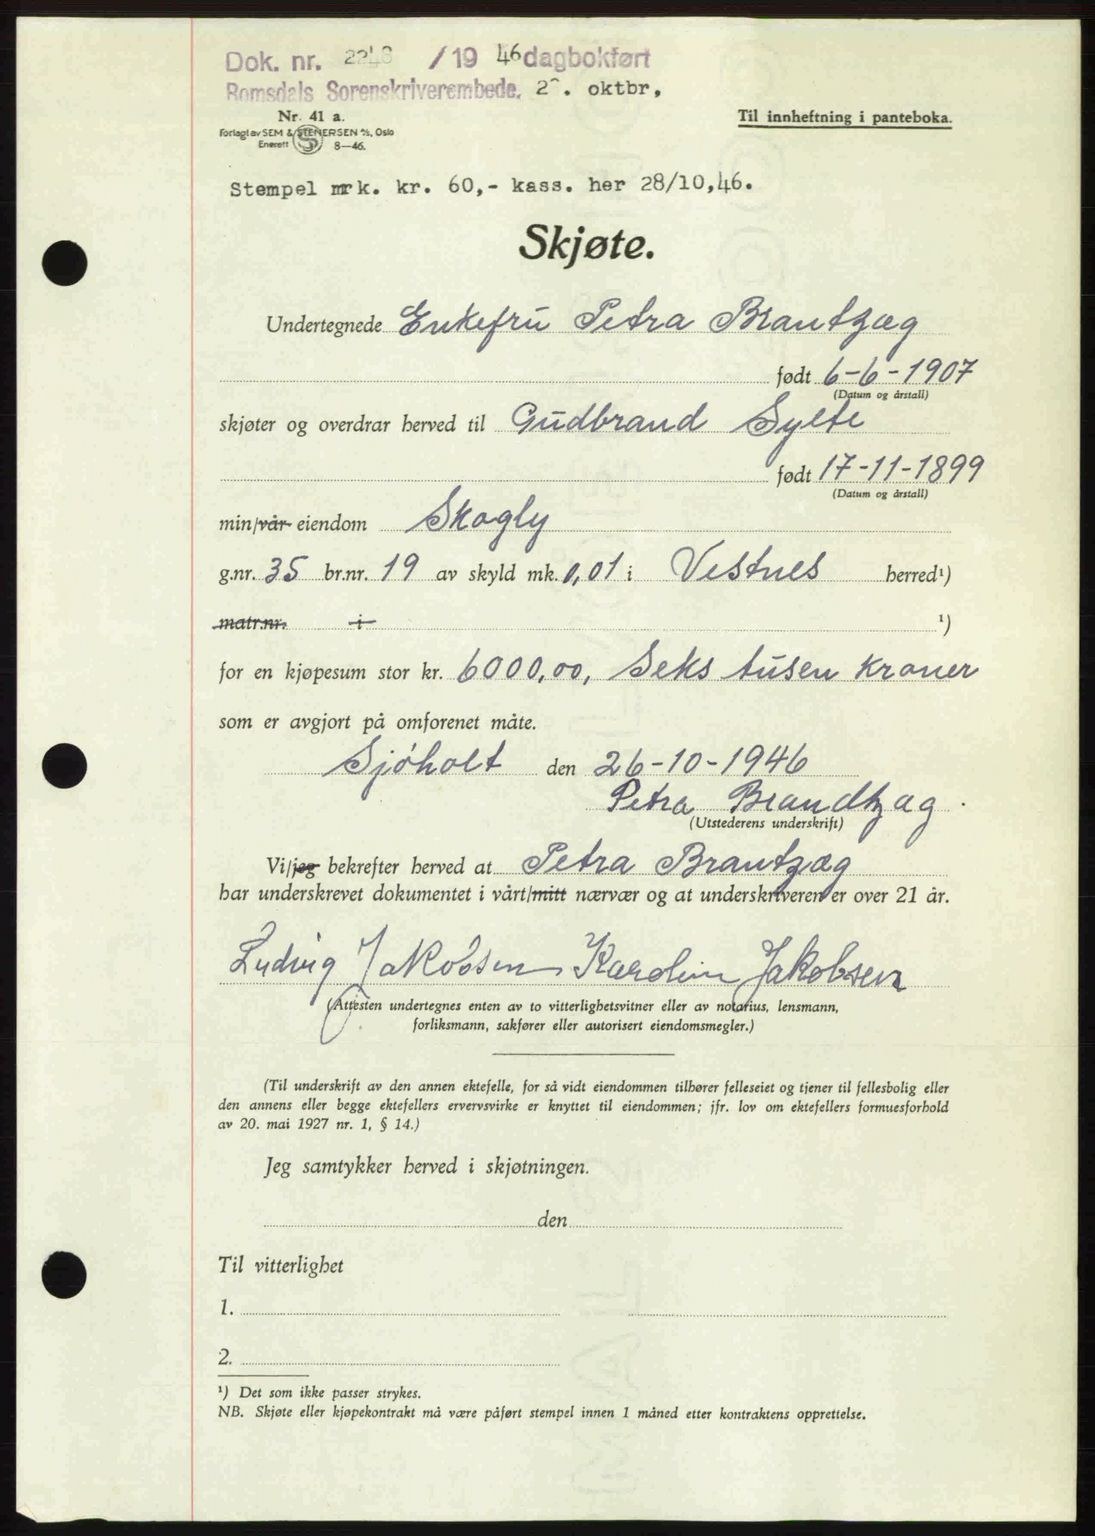 Dok. nr. /19 46 dagbokført
Romsdals Sorenskriverembede. oktbr,
Nr. 41 a.
Forlagt av SEM & STENERSEN A/S, Oslo
Enerett S 8—46.
Til innheftning i panteboka.
Stempel mrk. kr. 60,- kass. her 28/10,46.
Skjøte.
Undertegnede Enkefru Petra Brantzæg
født 6-6-1907
(Datum og årstall)
skjøter og overdrar herved til Gudbrand Sylte
født 17-11-1899
(Datum og årstall)
min/vår eiendom Skogly
g.nr. 35 br.nr. 19 av skyld mk. 0,01 i Vestnes herred¹)
matr.nr. i ¹)
for en kjøpesum stor kr. 6000,00, Seks tusen kroner
som er avgjort på omforenet måte.
Sjøholt den 26-10-1946
Petra Brandtzæg.
(Utstederens underskrift)
Vi/jeg bekrefter herved at Petra Brantzæg
har underskrevet dokumentet i vårt/mitt nærvær og at underskriveren er over 21 år.
Ludvig Jakobsen Karolin Jakobsen
(Attesten undertegnes enten av to vitterlighetsvitner eller av notarius, lensmann,
forliksmann, sakfører eller autorisert eiendomsmegler.)
(Til underskrift av den annen ektefelle, for så vidt eiendommen tilhører felleseiet og tjener til fellesbolig eller
den annens eller begge ektefellers ervervsvirke er knyttet til eiendommen; jfr. lov om ektefellers formuesforhold
av 20. mai 1927 nr. 1, § 14.)
Jeg samtykker herved i skjøtningen.
den
Til vitterlighet
1.
2.
¹) Det som ikke passer strykes.
NB. Skjøte eller kjøpekontrakt må være påført stempel innen 1 måned etter kontraktens opprettelse.